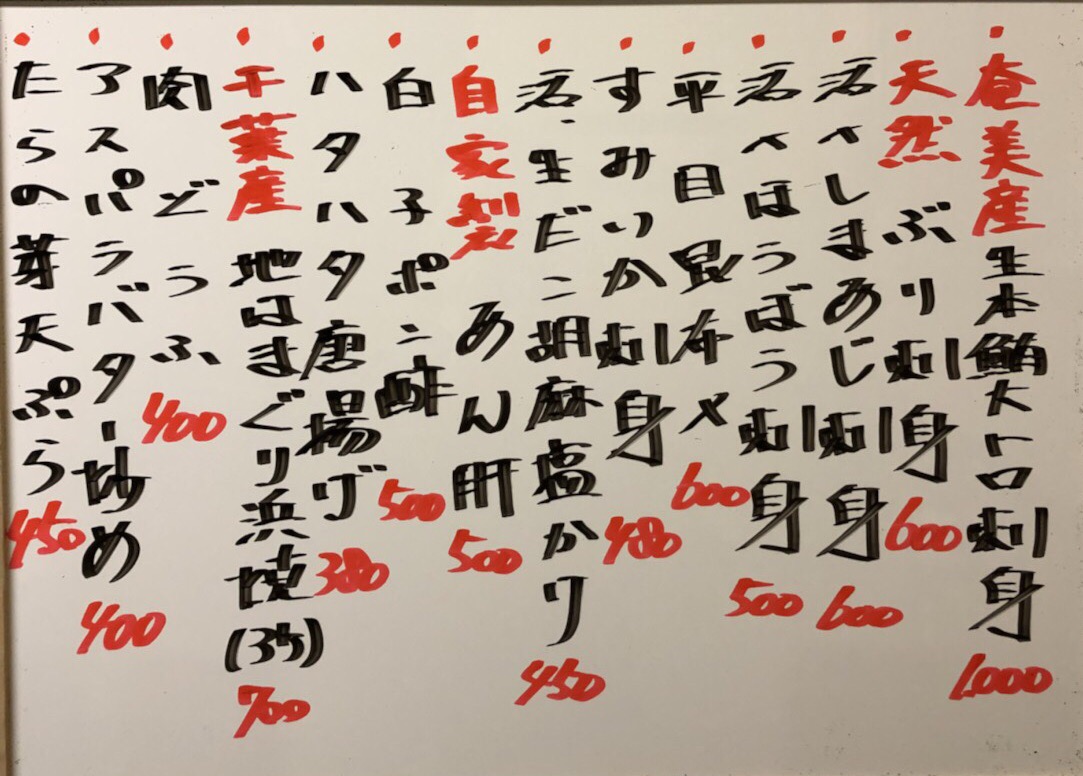 奄美産 生本鮪大トロ刺身 1,000
天然 ぶり刺身 600
活〆しまあじ刺身 600
活〆ほうぼう刺身 500
平目昆布〆 600
すみいか刺身 480
活、生だこ胡麻塩かり 450
自家製 あん肝 500
白子ポン酢 500
ハタハタ唐揚げ 380
千葉産 地はまぐり浜焼(3ヶ) 700
肉どうふ 400
アスパラバター炒め 400
たらの芽天ぷら 450